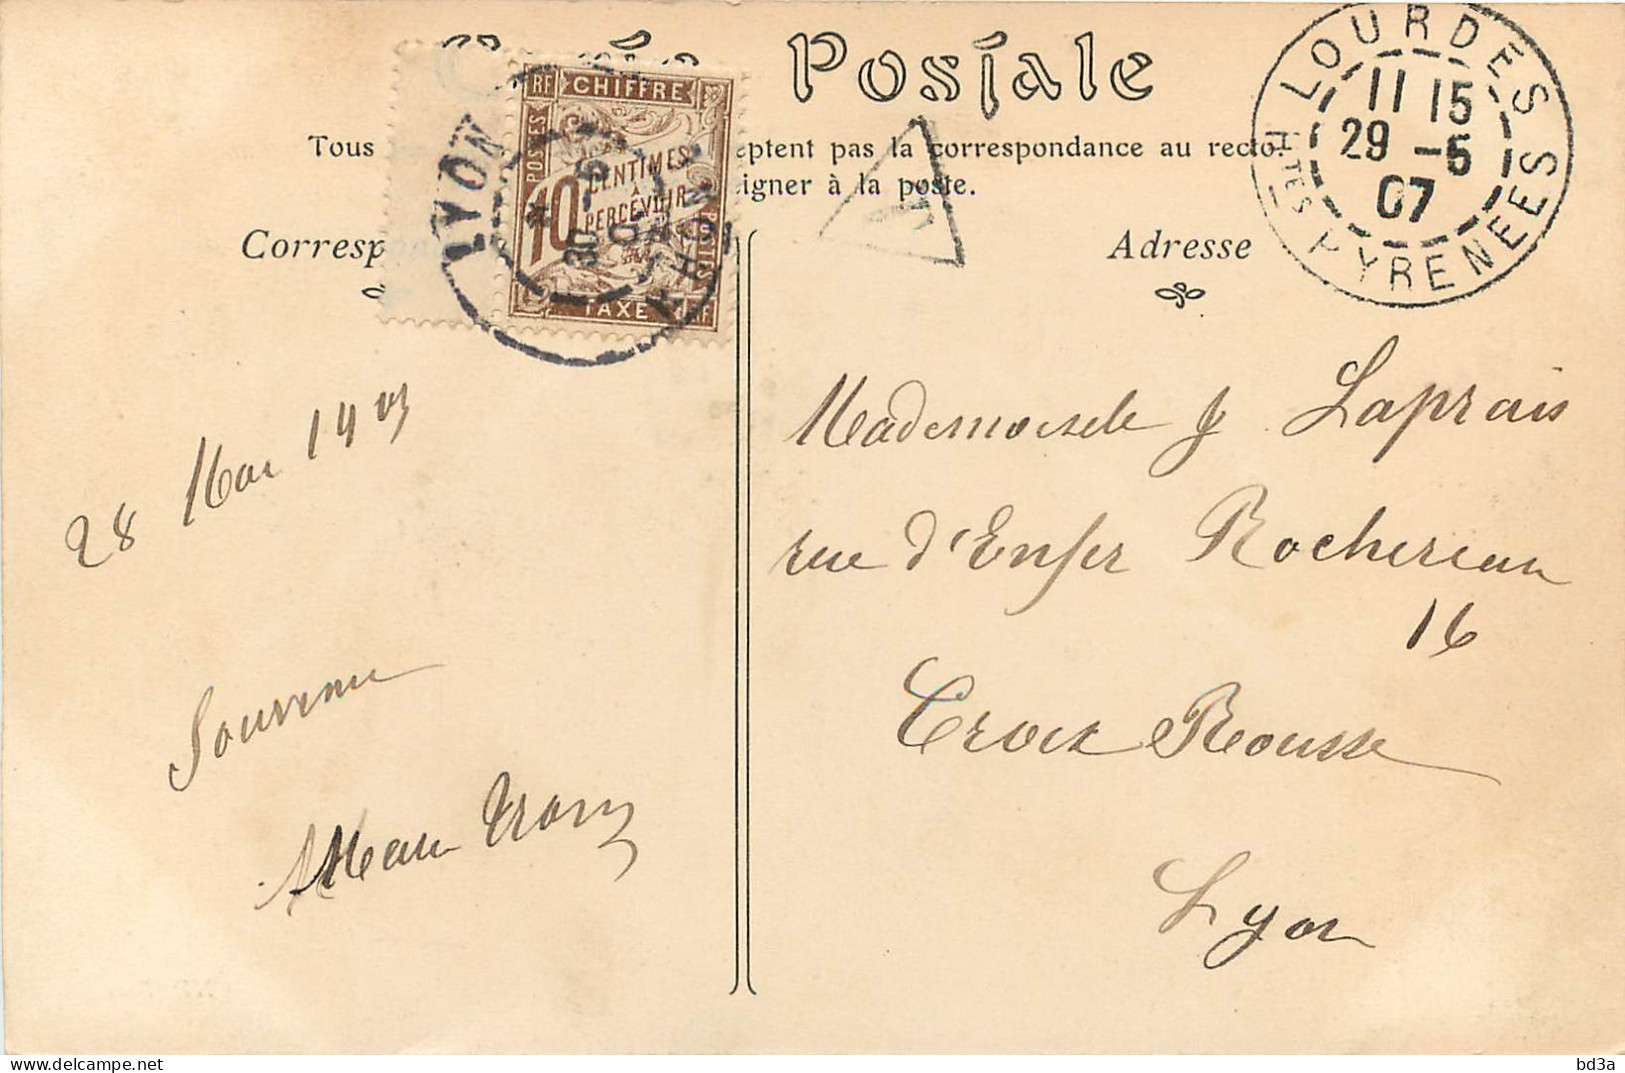 Carte Postale
Tous
eptent pas la correspondance au recto.
igner à la poste.
Corresp
Adresse
RF CHIFFRE
POSTES
10 CENTIMES
À
PERCEVOIR
POSTES
TAXE RF
LYON
RHONE
30 -5
T
LOURDES
11 15
29 -5
07
HTES PYRENEES
28 Mai 1907
Souvenir
Mademoiselle J Laprais
rue d'Enfer Rochereau
16
Croix Rousse
Lyon
bd3a